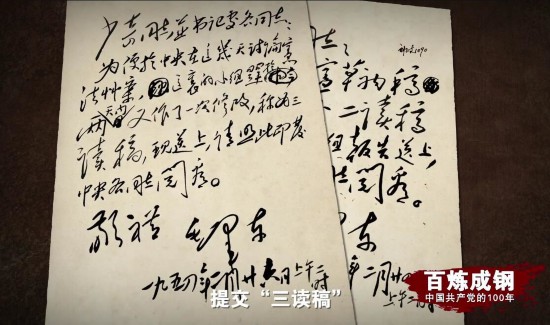 少奇同志並书记处各同志:
为便於中央在這幾天讨论憲
法草案,這裏的小组
两天内又作了一次修改,称为三
读稿,现送上,请照此印发
中央各同志阅看。
敬礼 毛泽东
一九五四年二月廿六日上午二时
草初稿
二读稿
组报告送上,
阅看。
东
年二月廿
提交“三读稿”
百炼成钢
中国共产党的100年